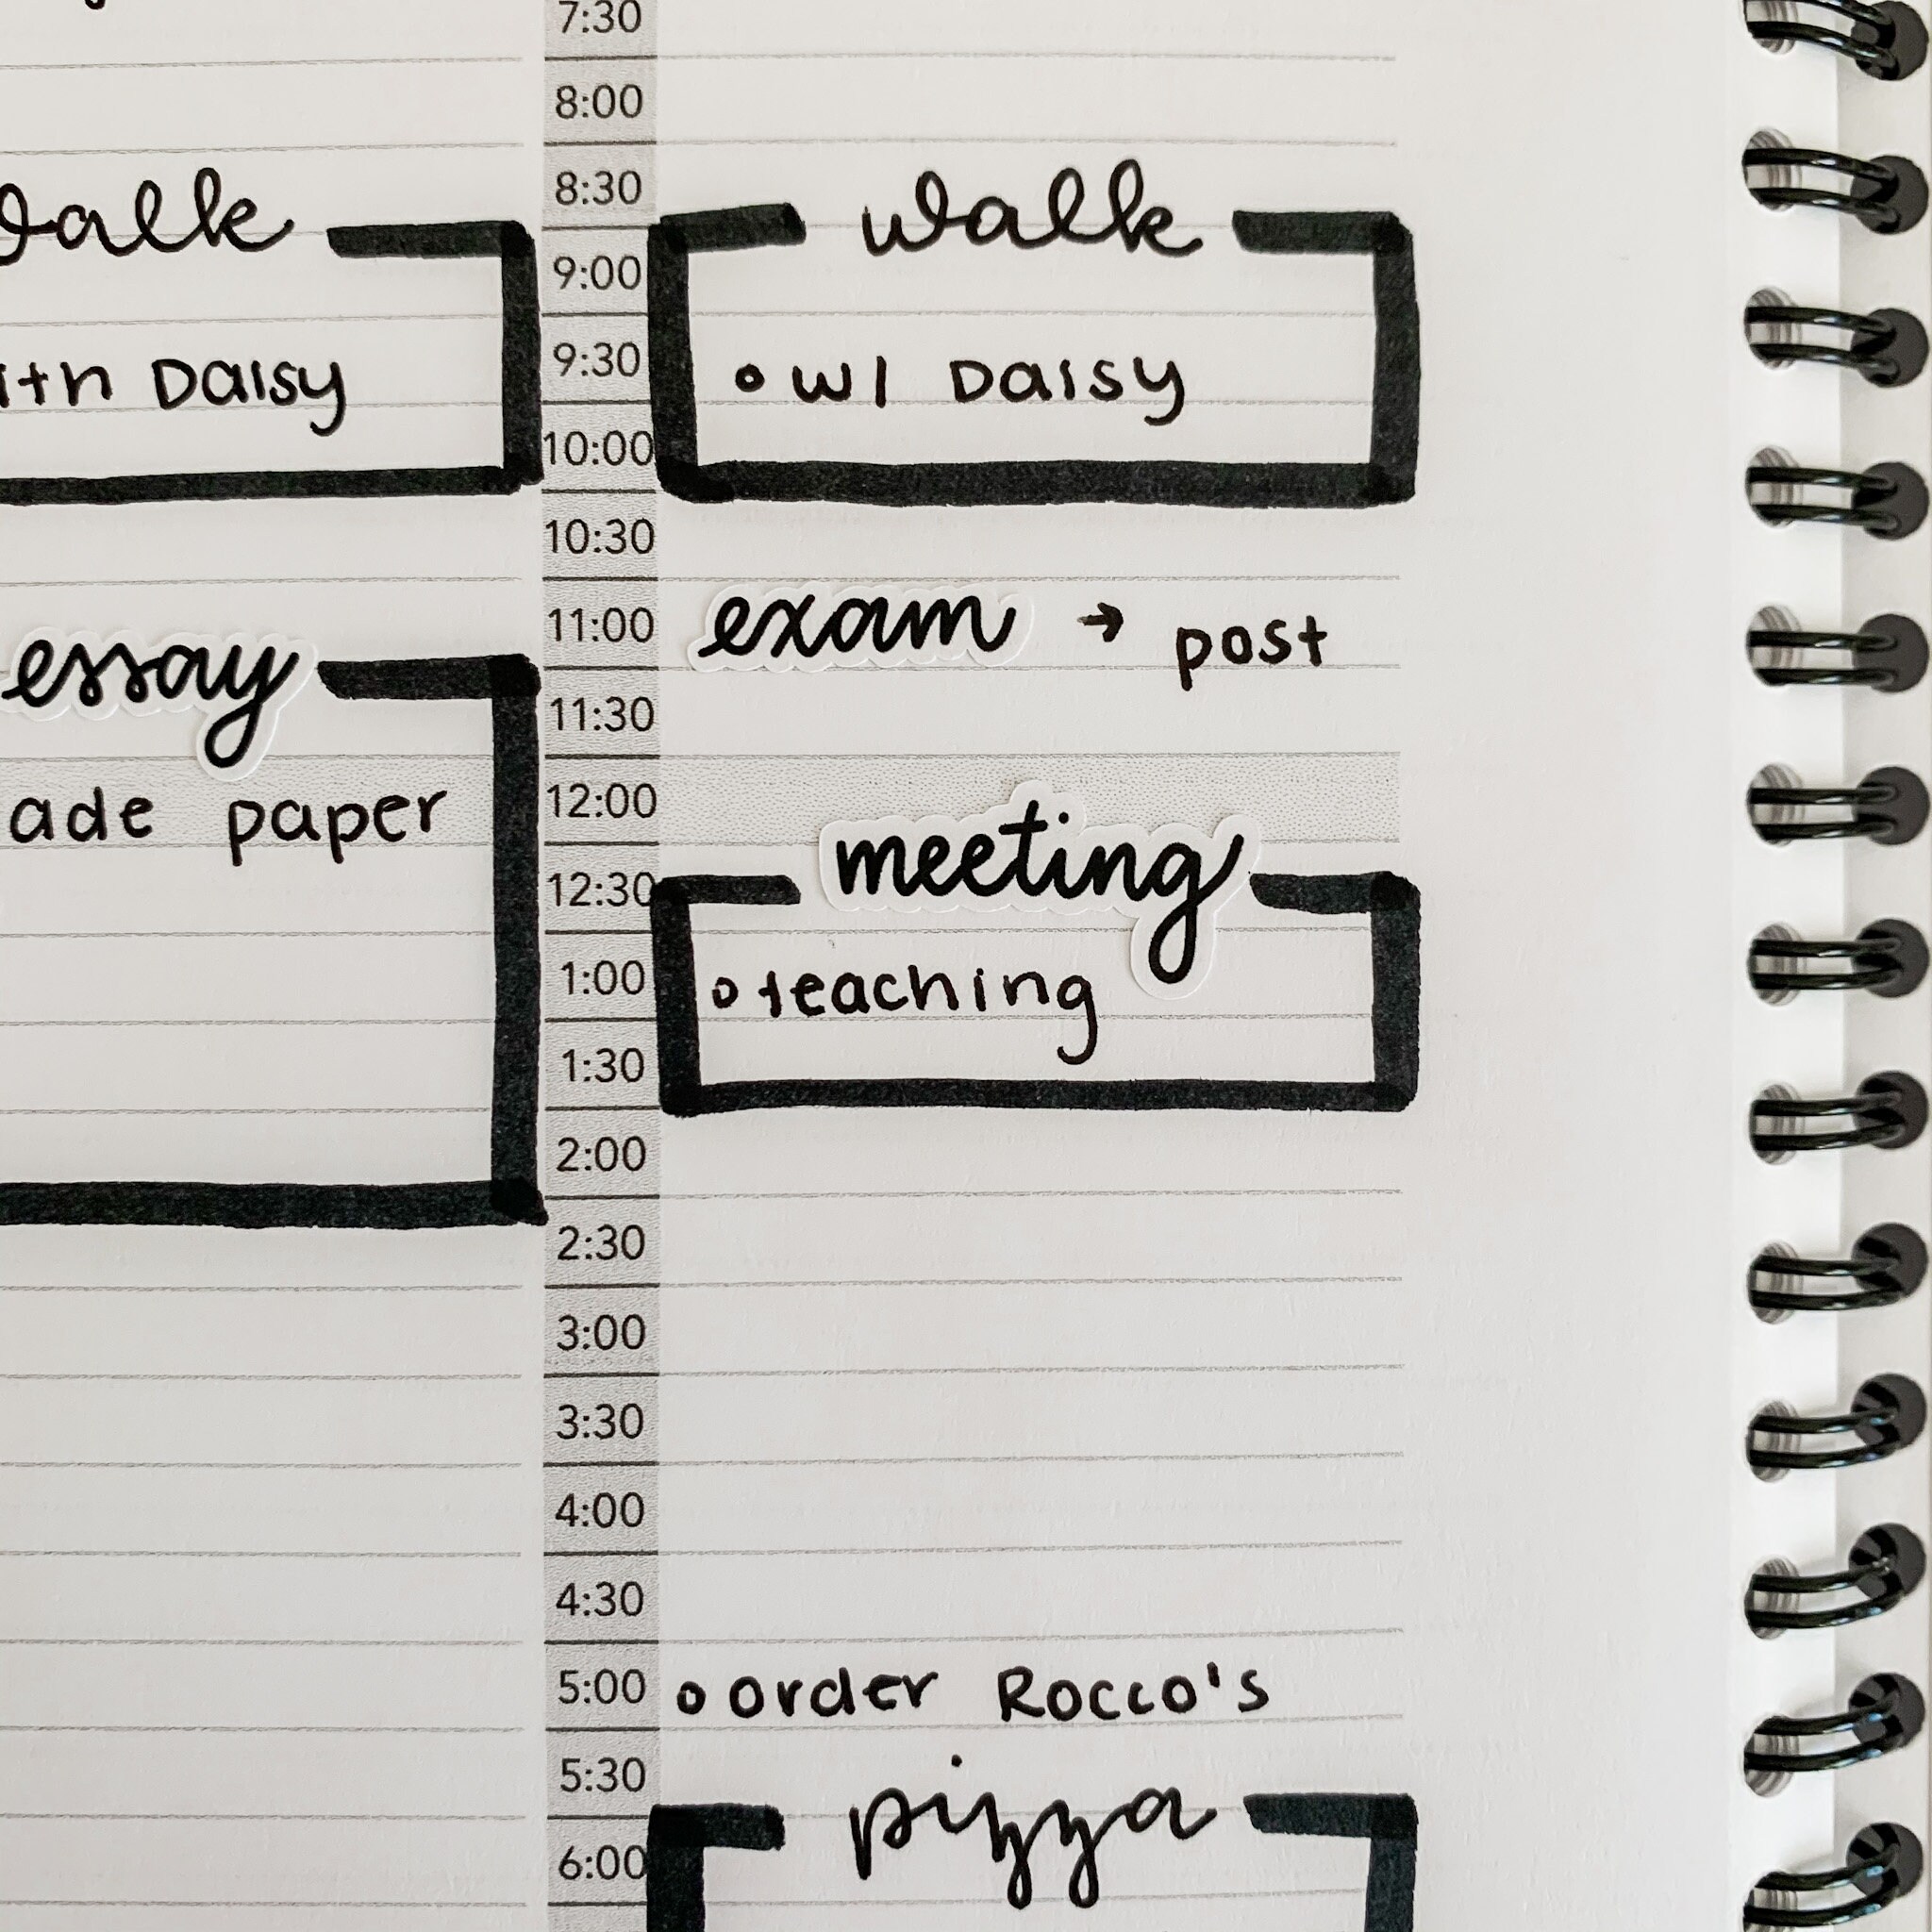 7:30
8:00
8:30
9:00
9:30
10:00
10:30
11:00
11:30
12:00
12:30
1:00
1:30
2:00
2:30
3:00
3:30
4:00
4:30
5:00
5:30
6:00
walk
Daisy
essay
paper
walk
w/ Daisy
exam → post
meeting
teaching
order Rocco's
pizza